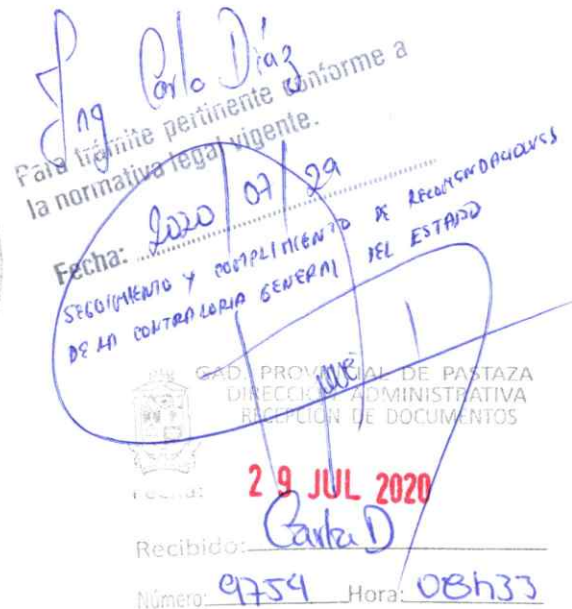 Ing Carla Díaz
Para trámite pertinente conforme a
la normativa legal vigente.
Fecha: 2020/07/29
SEGUIMIENTO Y CUMPLIMIENTO DE RECOMENDACIONES
DE LA CONTRALORIA GENERAL DEL ESTADO
GAD. PROVINCIAL DE PASTAZA
DIRECCIÓN ADMINISTRATIVA
RECEPCIÓN DE DOCUMENTOS
Fecha: 29 JUL 2020
Recibido: Carla D
Número: 9754 Hora: 08h33